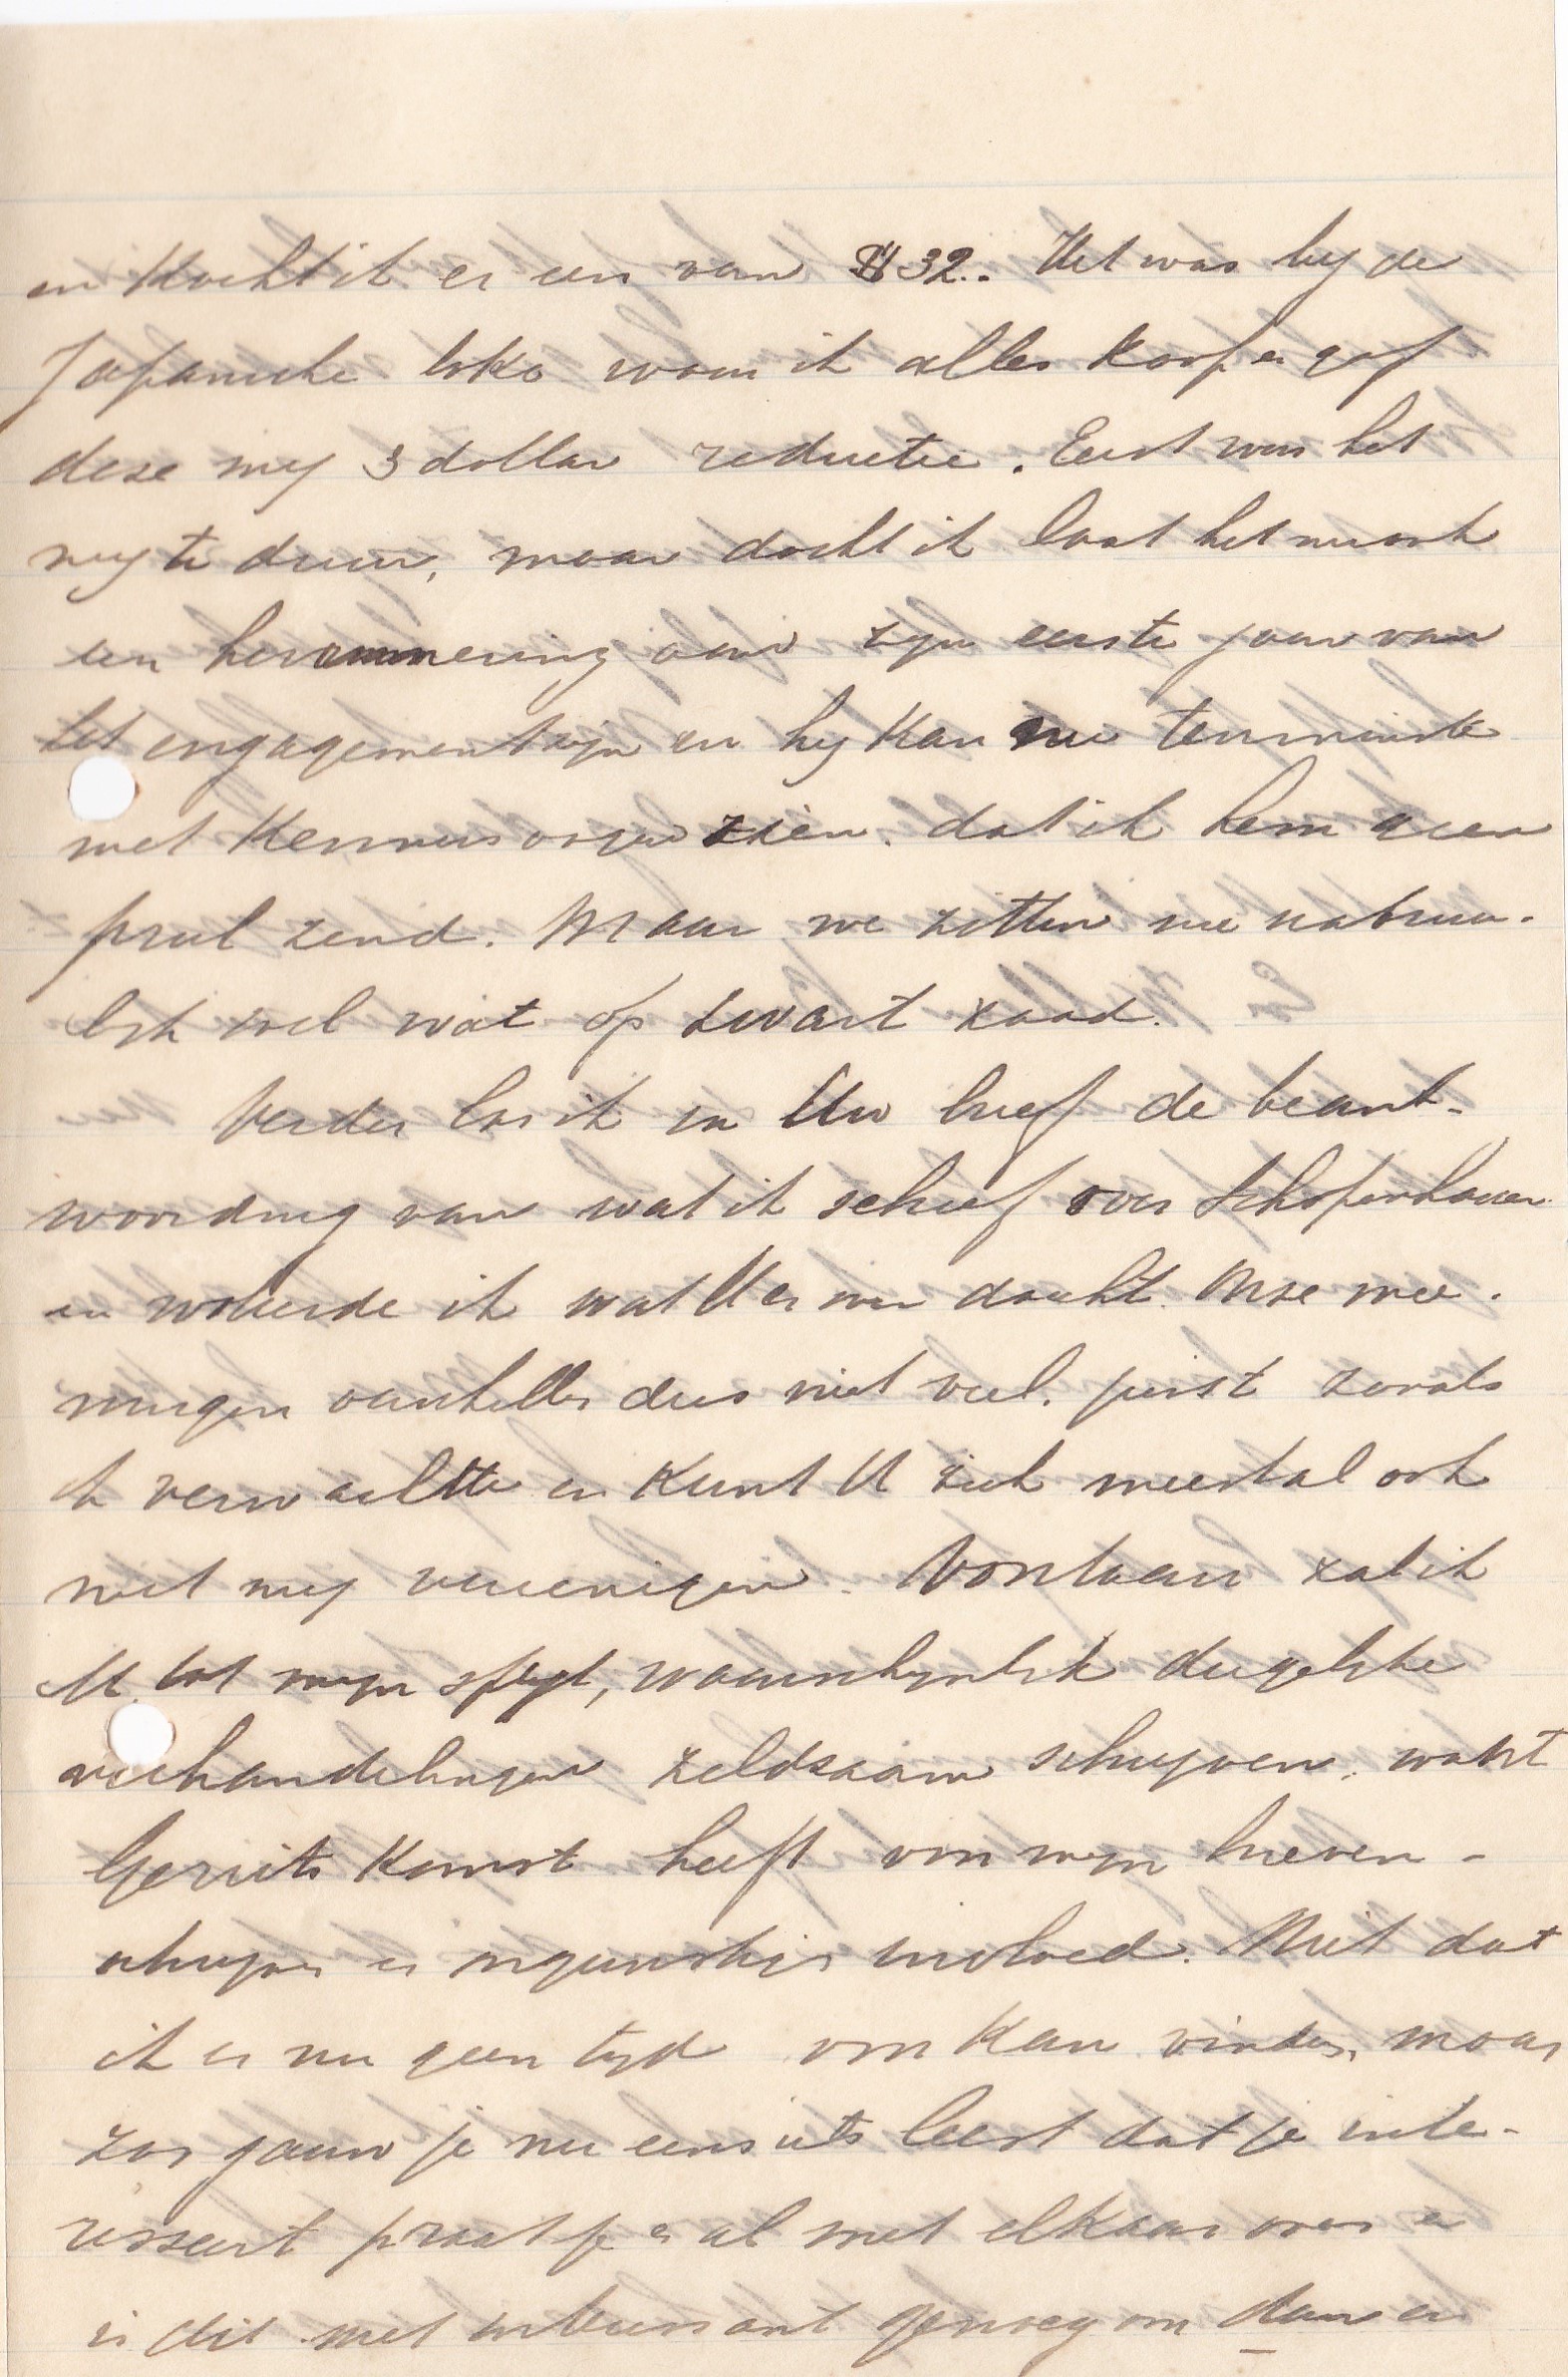 en kocht ik er een van $32.. Het was by de
Japansche toko waar ik alles koop en gaf
deze my 3 dollar reductie. Eerst was het
my te duur, maar dacht ik laat het nu ook
een herinnering aan zyn eerste jaar van
het engagement zyn en hy kan nu tenminste
met kennersoogen zien. dat ik hem geen
prul zend. Maar we zitten nu natuur-
lyk wel wat op zwart zaad.
Verder las ik in Uw brief de beant-
woording van wat ik schreef over Schopenhauer
en ik wat U er over dacht. Onze mee-
ningen verschillen dus niet veel. juist zooals
ik verwachtte en kunt U zich meestal ook
met my vereenigen. Voortaan zal ik
U, tot myn spyt, waarschynlyk dergelyke
verhandelingen zeldzaam schryven, want
Gerrits komst heeft on myn brieven-
schryven een ongunstige invloed. Niet dat
ik er nu geen tyd om kan vinden, maar
zoo gauw je nu eens iets leest dat je inte-
resseert praat je er al met elkaar over en
is dit niet interessant genoeg om dan er